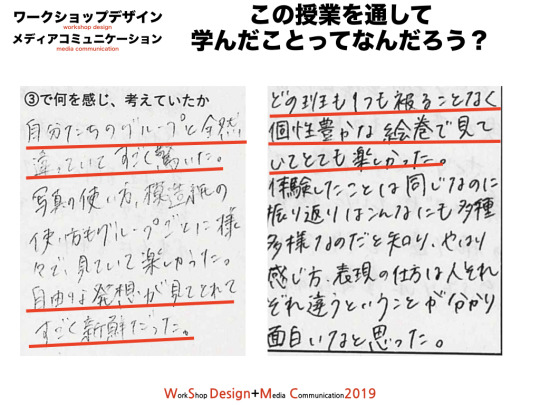 ワークショップデザイン
workshop design
メディアコミュニケーション
media communication
この授業を通して
学んだことってなんだろう？
③で何を感じ、考えていたか
自分たちのグループと全然
違っていてすごく驚いた。
写真の使い方、模造紙の
使い方もグループごとに様
々で、見ていて楽しかった。
自由な発想が見てとれて
すごく新鮮だった。
どの班も1つも被ることなく
個性豊かな絵巻で見て
いてとても楽しかった。
体験したことは同じなのに
振り返りはこんなにも多種
多様なのだと知り、やはり
感じ方、表現の仕方は人それ
ぞれ違うということが分かり
面白いなと思った。
WorkShop Design+Media Communication2019